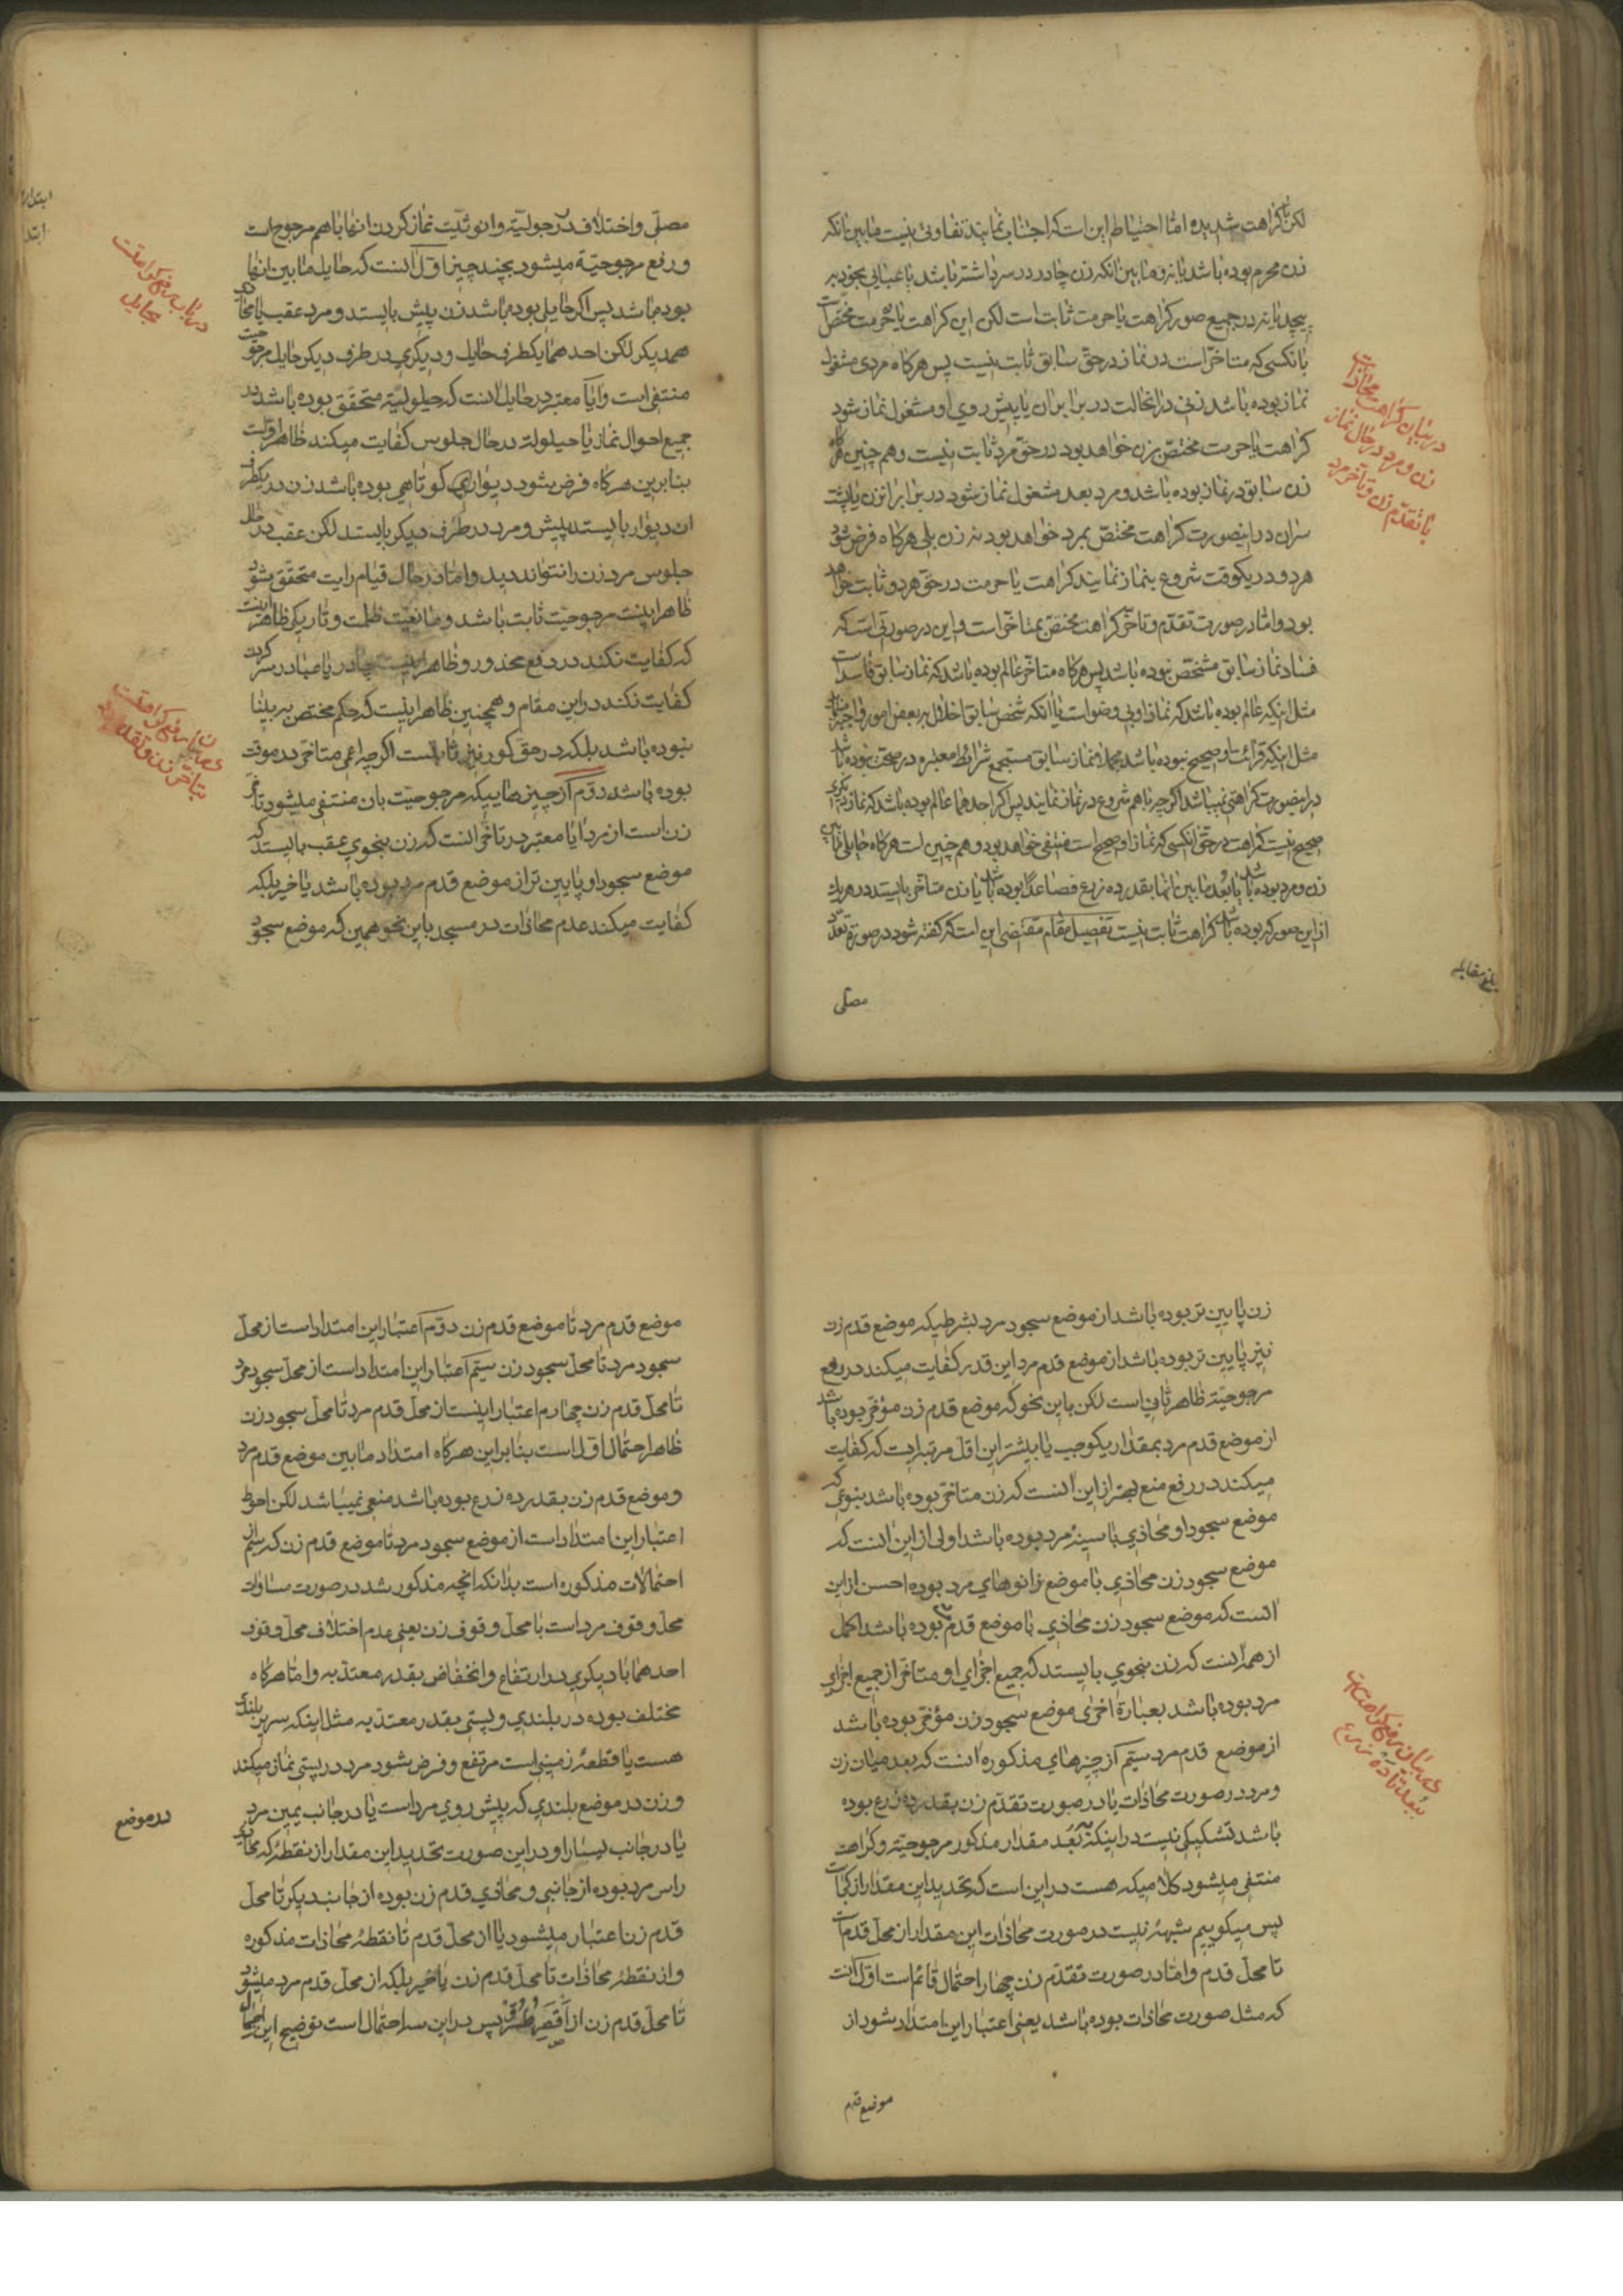 لکن کراهت شدیده اما احتیاط این است که اجتناب نمایند تفاوتی نیست مابین انکه
زن محرم بوده باشد یا نه و مابین انکه زن چادر در سر داشته باشد یا عبایی بخود بر
پیچد یا نه در جمیع صور کراهت یا حرمت ثابت است لکن این کراهت یا حرمت مختص است
بانکسی که متاخر است در نماز در حق سابق ثابت نیست پس هر کاه مردی مشغول
نماز بوده باشد زنی در انحالت در برابر ان یا پیش روی او مشغول نماز شود
کراهت یا حرمت مختص بزن خواهد بود در حق مرد ثابت نیست و هم چنین هرکاه
زن سابق در نماز بوده باشد و مرد بعد مشغول نماز شود در برابر انزن یا پشت
سر ان در اینصورت کراهت مختص بمرد خواهد بود نه زن بلی هرکاه فرض شود
هر دو در یکوقت شروع بنماز نمایند کراهت یا حرمت در حق هر دو ثابت خواهد
بود و اما در صورت تقدم و تاخر کراهت مختص بمتاخر است و این در صورتی است که
فساد نماز سابق مشخص نبوده باشد پس هرکاه متاخر عالم بوده باشد که نماز سابق فاسد است
مثل اینکه عالم بوده باشد که نماز او بی وضو است یا انکه شخص سابق اخلال به بعض امور واجبه
مثل اینکه قرائت او صحیح نبوده باشد مجملا نماز سابق مستجمع شرائط معتبره در صحت نبوده باشد
در اینصورت کراهتی نمیباشد اکرچه باهم شروع در نماز نمایند پس اکر احدهما عالم بوده باشد که نماز دیکری
صحیح نیست کراهت در حق انکسی که نماز او صحیح است منتفی خواهد بود و هم چنین است هرکاه حایلی مابین
زن و مرد بوده باشد یا بعد مابین انها بقدر ده زرع فصاعدا بوده باشد یا زن متاخر بایستد در هر یک
از این صور که بوده باشد کراهت ثابت نیست تفصیل مقام مقتضی این است که کفته شود در صورة تعدد
مصلی
در بیان کراهت محاذات
زن و مرد در حال نماز
با تقدم زن و تاخر مرد
بلغ مقابله
مصلی و اختلاف در رجولیة و انوثیت نماز کردن انها باهم مرجوح است
و رفع مرجوحیة میشود بچند چیز اول انست که حایل مابین انها
بوده باشد پس اکر حایلی بوده باشد زن پیش بایستد و مرد عقب یا محاذی
همدیکر لکن احدهما یکطرف حایل و دیکری در طرف دیکر حایل مرجوحیت
منتفی است و ایا معتبر در حایل انست که حیلولیة متحقق بوده باشد در
جمیع احوال نماز یا حیلولة در حال جلوس کفایت میکند ظاهر اولست
بنابرین هرکاه فرض شود دیوار کوتاهی بوده باشد زن در یکطرف
ان دیوار بایستد پیش و مرد در طرف دیکر بایستد لکن عقب در حال
جلوس مرد زن را نتواند دید و اما در حال قیام رایت متحقق بشود
ظاهر اینست مرجوحیت ثابت باشد و مانعیت ظلمت و تاریکی ظاهر اینست
که کفایت نکند در دفع محذور و ظاهر اینست چادر یا عبا در سر کردن
کفایت نکند در این مقام و همچنین ظاهر اینست که حکم مختص به بینا
نبوده باشد بلکه در حق کور نیز ثابت است اکرچه اعمی متاخر در موقت
بوده باشد دوم از چیزهاییکه مرجوحیت بان منتفی میشود تاخر
زن است از مرد ایا معتبر در تاخر انست که زن بنحوی عقب بایستد که
موضع سجود او پایین تر از موضع قدم مرد بوده باشد یا خیر بلکه
کفایت میکند عدم محاذات در مسجد باین نحو همین که موضع سجود
در باب رفع کراهت
بحایل
بتاخر زن و تقدم
ابتدا
زن پایین تر بوده باشد از موضع سجود مرد بشرطیکه موضع قدم زن
نیز پایین تر بوده باشد از موضع قدم مرد این قدر کفایت میکند در رفع
مرجوحیة ظاهر ثانی است لکن باین نحو که موضع قدم زن مؤخر بوده باشد
از موضع قدم مرد بمقدار یکوجب یا بیشتر این اقل مرتبه ایت که کفایت
میکند در رفع منع بهتر از این انست که زن متاخر بوده باشد بنوعی که
موضع سجود او محاذی با سینهٔ مرد بوده باشد اولی از این انست که
موضع سجود زن محاذی با موضع زانوهای مرد بوده احسن از این
انست که موضع سجود زن محاذی با موضع قدم مرد بوده باشد اکمل
از همه انست که زن بنحوی بایستد که جمیع اجزای او متاخر از جمیع اجزای
مرد بوده باشد بعبارة اخری موضع سجود زن مؤخر بوده باشد
از موضع قدم مرد سیم از چیزهای مذکوره انست که بعد میان زن
و مرد در صورت محاذات یا در صورت تقدم زن بقدر ده زرع بوده
باشد تشکیکی نیست در اینکه به بعد مقدار مذکور مرجوحیة و کراهت
منتفی میشود کلامیکه هست در این است که تحدید این مقدار از کجاست
پس میکوییم شبههٔ نیست در صورت محاذات این مقدار از محل قدم است
تا محل قدم و اما در صورت تقدم زن چهار احتمال قائم است اول انست
که مثل صورت محاذات بوده باشد یعنی اعتبار این امتداد شود از
موضع قدم
در بیان رفع کراهت
ببعد تا ده زرع
موضع قدم مرد تا موضع قدم زن دوم اعتبار این امتداد است از محل
سجود مرد تا محل سجود زن سیم اعتبار این امتداد است از محل سجود مرد
تا محل قدم زن چهارم اعتبار اینست از محل قدم مرد تا محل سجود زن
ظاهر احتمال اول است بنابراین هرکاه امتداد مابین موضع قدم مرد
و موضع قدم زن بقدر ده زرع بوده باشد منعی نمیباشد لکن احوط
اعتبار این امتداد است از موضع سجود مرد تا موضع قدم زن که سیم از
احتمالات مذکوره است بدانکه انچه مذکور شد در صورت مساوات
محل وقوف مرد است با محل وقوف زن یعنی عدم اختلاف محل وقوف
احدهما با دیکری در ارتفاع و انخفاض بقدر معتد به و اما هرکاه
مختلف بوده در بلندی و پستی بقدر معتد به مثل اینکه سر بن بلندی
هست یا قطعهٔ زمینی است مرتفع و فرض شود مرد در پستی نماز میکند
و زن در موضع بلندی که پیش روی مرد است یا در جانب یمین مرد
یا در جانب یسار او در این صورت تحدید این مقدار از نقطهٔ که محاذی
راس مرد بوده از جانبی و محاذی قدم زن بوده از جانب دیکر تا محل
قدم زن اعتبار میشود یا از محل قدم تا نقطهٔ محاذات مذکوره
و از نقطهٔ محاذات تا محل قدم زن یا خیر بلکه از محل قدم مرد میشود
تا محل قدم زن از اقصر طرق پس در این سه احتمال است توضیح این اجمال
در موضع